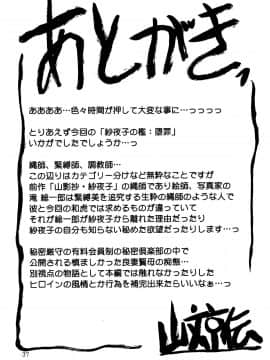 あとがき
ああああ…色々時間が押して大変な事に…っっっっ
とりあえず今回の「紗夜子の檻：堕罪」
いかがでしたでしょうか…っ
縄師、緊縛師、調教師…
この辺りはカテゴリー分けなど無粋なことですが
前作「山影抄・紗夜子」の縄師であり絵師、写真家の
滝 絵一郎は緊縛美を追究する生粋の縄師のような人で
彼と今回の和虎では求めるものが違っていて
それが絵一郎が紗夜子から離れた理由だったり
紗夜子の自分も知らない秘めた欲望だったりします…っ
秘密厳守の有料会員制の秘密倶楽部の中で
公開される慎ましかった良妻賢母の痴態…
別視点の物語として本編では触れなかったりした
ヒロインの風格とか行為を補完出来たらいいなぁ…っ
山文京伝
37